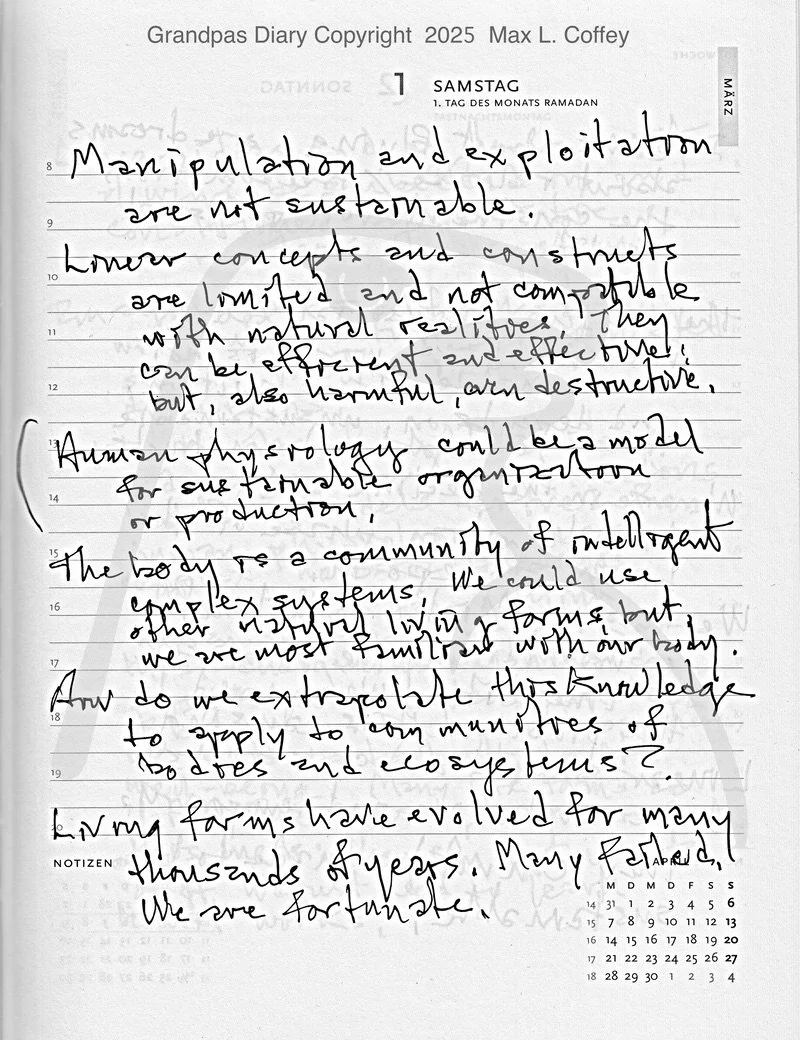 Grandpas Diary Copyright 2025 Max L. Coffey
1 SAMSTAG
1. TAG DES MONATS RAMADAN
MÄRZ
8 Manipulation and exploitation
are not sustainable.
9
Linear concepts and constructs
10
are limited and not compatible
11 with natural realities. They
can be efficient and effective;
12 but, also harmful, even destructive.
13 Human physiology could be a model
for sustainable organization
14 or production.
15 The body is a community of intelligent
complex systems. We could use
16 other natural living forms, but,
we are most familiar with our body.
17
How do we extrapolate this knowledge
18
to apply to communities of
19 bodies and ecosystems?
20 Living forms have evolved for many
NOTIZEN thousands of years. Many failed.
We are fortunate.
APRIL
M D M D F S S
14 31 1 2 3 4 5 6
15 7 8 9 10 11 12 13
16 14 15 16 17 18 19 20
17 21 22 23 24 25 26 27
18 28 29 30 1 2 3 4